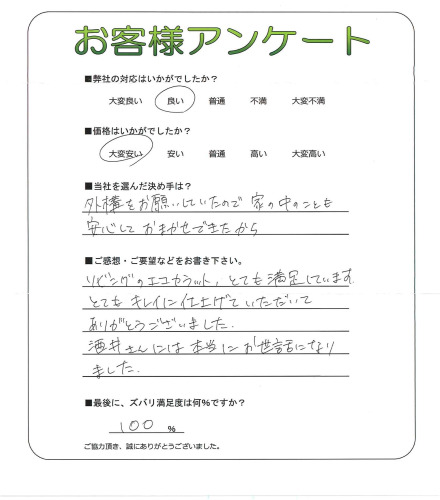 お客様アンケート
■弊社の対応はいかがでしたか?
大変良い 良い 普通 不満 大変不満
■価格はいかがでしたか?
大変安い 安い 普通 高い 大変高い
■当社を選んだ決め手は?
外構をお願いしていたので 家の中のことも
安心して おまかせできたから
■ご感想・ご要望などをお書き下さい。
リビングのエコカラット,とても満足しています
とても キレイに仕上げて いただいて
ありがとうございました.
酒井さんには 本当に お世話になり
ました.
■最後に、ズバリ満足度は何%ですか?
100 %
ご協力頂き、誠にありがとうございました。